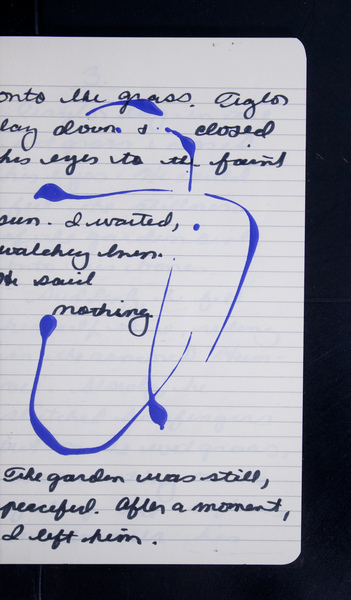 onto the grass. Aiglos
lay down & closed
his eyes to the faint
sun. I waited,
watching him.
He said
nothing.
The garden was still,
peaceful. After a moment,
I left him.